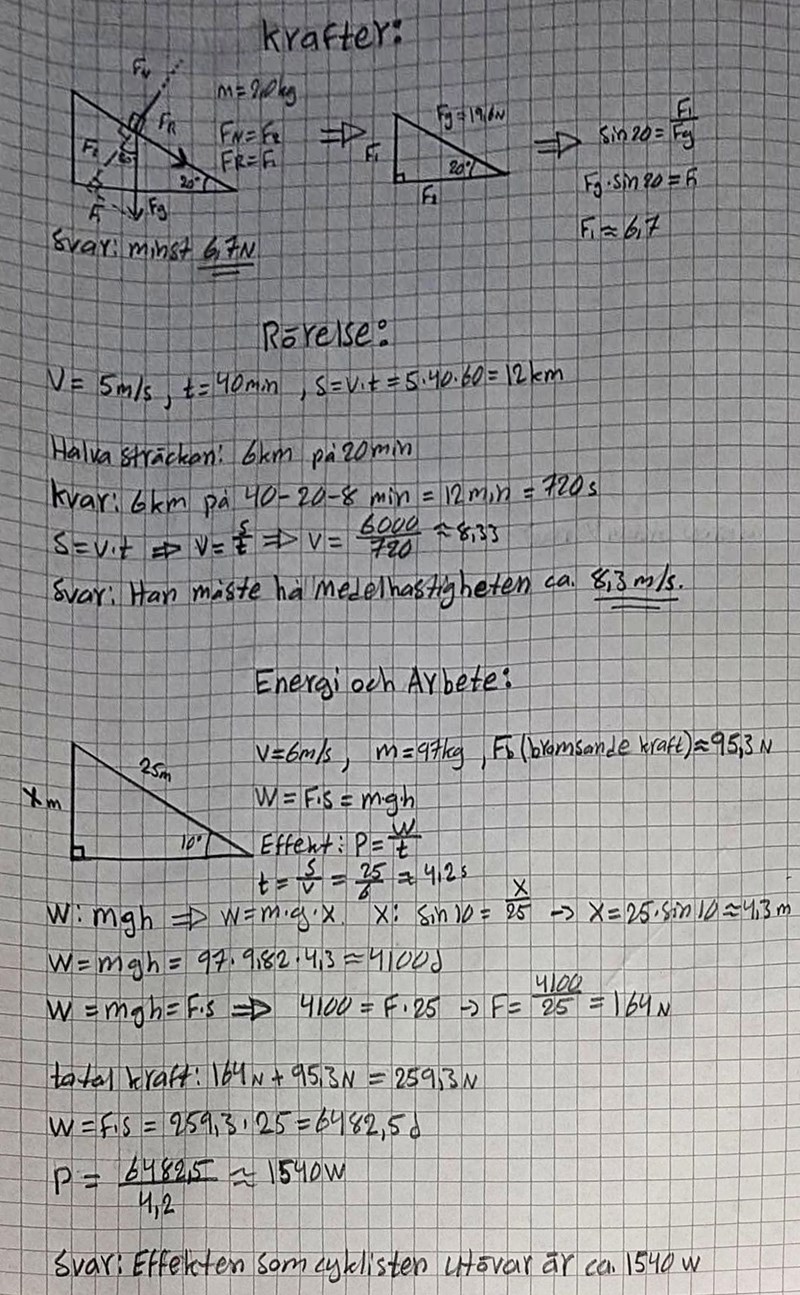 Krafter:
m=2,0kg
FN
FR
FN=F2
FR=F1
F2
20°
Fg
F1
Fg=19,6N
20°
F2
sin20=F1/Fg
Fg·sin20=F1
F1≈6,7
Svar: minst 6,7N
Rörelse:
V= 5m/s, t=40min, S=v·t=5·40·60=12km
Halva sträckan: 6km på 20min
kvar: 6km på 40-20-8 min = 12min = 720s
S=v·t ⇒ v=s/t ⇒ v= 6000/720 ≈8,33
Svar: Han måste ha medelhastigheten ca. 8,3 m/s.
Energi och Arbete:
25m
Xm
10°
V=6m/s, m=97kg, Fb (bromsande kraft)≈95,3N
W=F·s=mgh
Effekt: P=W/t
t=s/v=25/6≈4,2s
W: mgh ⇒ W=m·g·x. X: sin10=X/25 → X=25·sin10≈4,3m
W=mgh= 97·9,82·4,3≈4100J
W=mgh=F·s ⇒ 4100=F·25 → F=4100/25=164N
total kraft: 164N+95,3N=259,3N
W=F·s=259,3·25=6482,5J
P= 6482,5/4,2 ≈ 1540W
Svar: Effekten som cyklisten utövar är ca. 1540 W